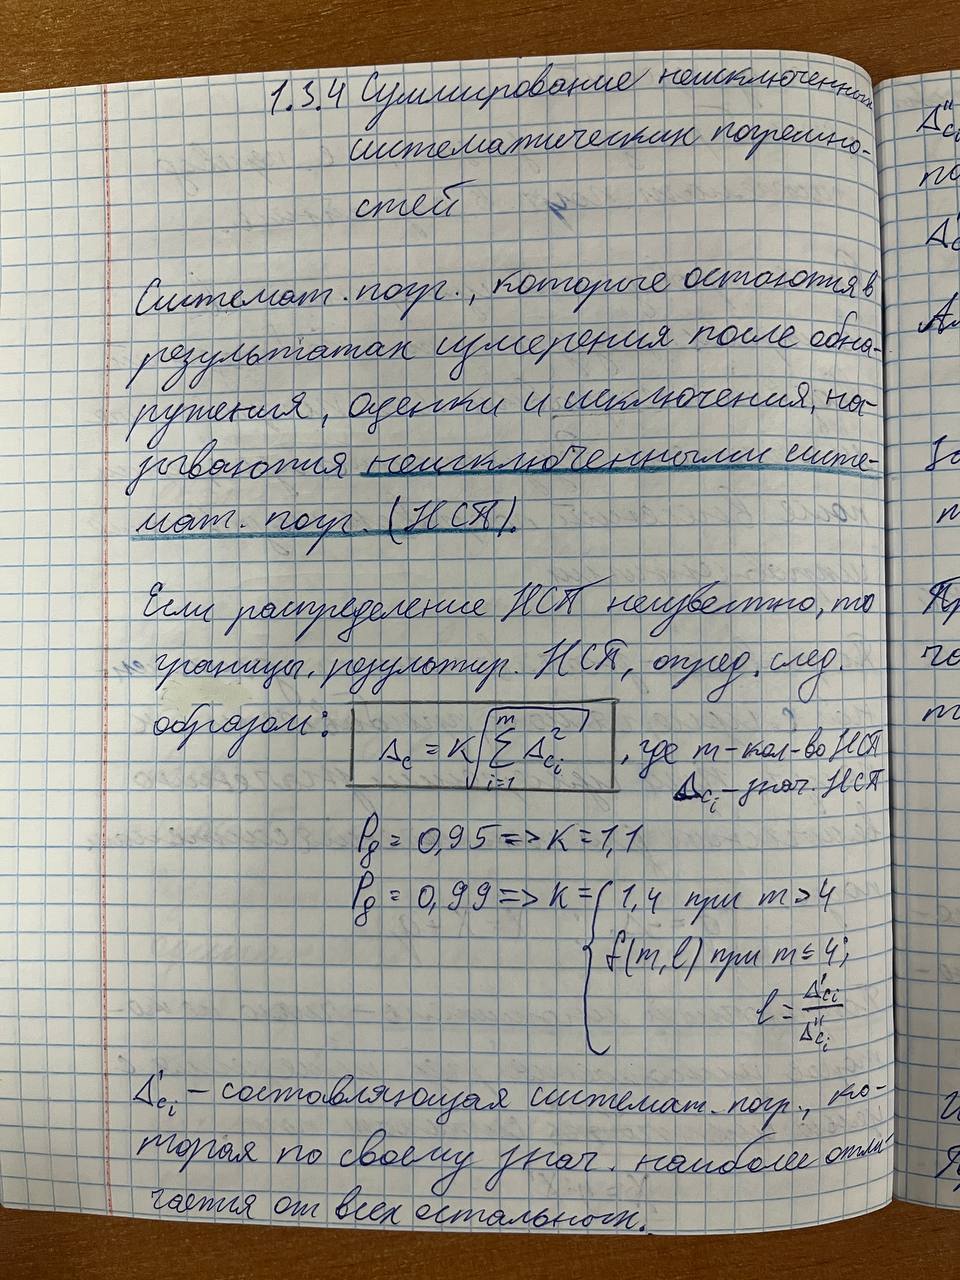 1.3.4 Суммирование неисключенных
систематических погрешно-
стей
Системат. погр., которые остаются в
результатах измерения после обна-
ружения, оценки и исключения, на-
зываются неисключенными систе-
мат. погр. (НСП).
Если распределение НСП неизвестно, то
границы. результир. НСП, опред. след.
образом: Δc = K√(∑_{i=1}^{m} Δ²ci) , где m - кол-во НСП
Δci - знач. НСП
Pд = 0,95 => K = 1,1
Pд = 0,99 => K = { 1,4 при m > 4
f(m, l) при m ≤ 4;
l = Δ'ci / Δ''ci
Δ'ci - составляющая системат. погр., ко-
торая по своему знач. наиболее отли-
чается от всех остальных.
Δ''ci
по